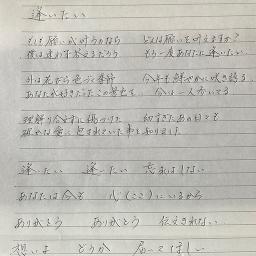 逢いたい
もしも願いが叶うのなら どんな願いを叶えますか?
僕は迷わず答えるだろう もう一度あなたに逢いたい
外は花たち色づく季節 今年も鮮やかに咲き誇る
あなたが好きだったこの景色を 今は一人歩いてる
理解り合えずに傷つけた 幼すぎたあの日々も
確かな愛に包まれていた事を知りました
逢いたい 逢いたい 忘れはしない
あなたは今も 心(ここ)にいるから
ありがとう ありがとう 伝えきれない
想いよ どうか 届いてほしい